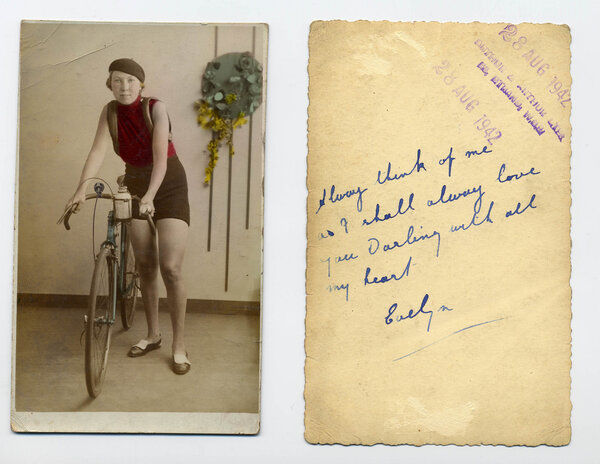 28 AUG 1942
28 AUG 1942
Alway think of me
as I shall alway love
you Darling with all
my heart
Evelyn